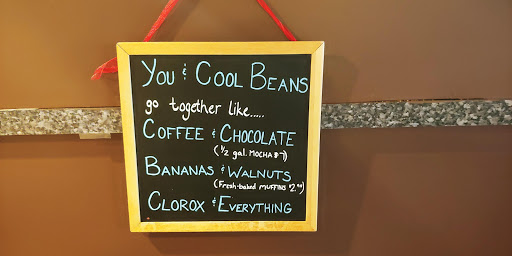 You & Cool Beans
go together like.....
Coffee & Chocolate
(½ gal. Mocha $7)
Bananas & Walnuts
(Fresh-baked Muffins $2.00)
Clorox & Everything